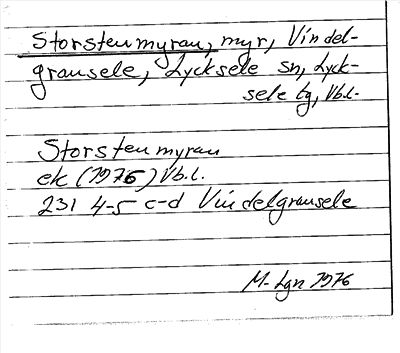 Storstenmyran, myr, Vindel-
gransele, Lycksele sn, Lyck-
sele tg, Vb.l.
Storstenmyran
ek (1976) Vb.l.
231 4-5 c-d Vindelgransele
M. Lgn 1976